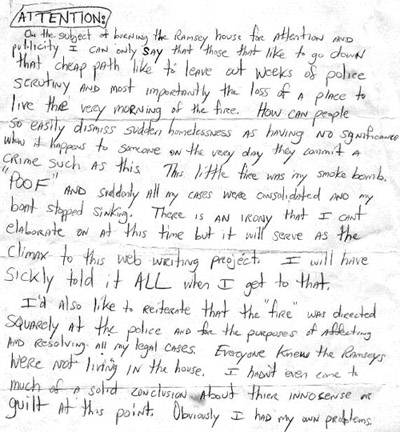 ATTENTION:
On the subject of burning the Ramsey house for attention and
publicity I can only SAY that those that like to go down
that cheap path like to leave out weeks of police
scrutiny and most importantly the loss of a place to
live the very morning of the fire. How can people
so easily dismiss sudden homelessness as having no significance
when it happens to someone on the very day they commit a
crime such as this. This little fire was my smoke bomb.
"POOF" and suddenly all my cases were consolidated and my
boat stopped sinking. There is an irony that I can't
elaborate on at this time but it will serve as the
climax to this web writing project. I will have
sickly told it ALL when I get to that.
I'd also like to reiterate that the "fire" was directed
squarely at the police and for the purposes of affecting
and resolving all my legal cases. Everyone knew the Ramseys
were not living in the house. I hadn't even come to
much of a solid conclusion about thier innosense or
guilt at this point. Obviously I had my own problems.